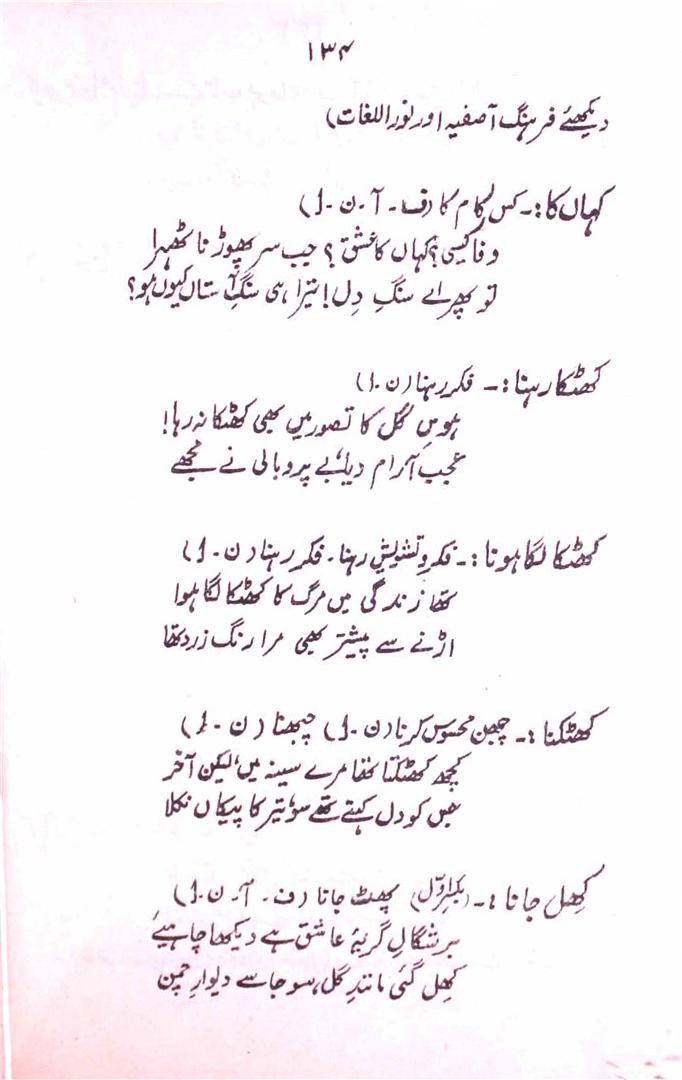 ۱۳۴
دیکھئے فرہنگ آصفیہ اور نور اللغات)
کہاں کا :۔ کس کام کا (ف۔ آ۔ ن۔ ل)
وفا کیسی؟ کہاں کا عشق؟ جب سر پھوڑنا ٹھہرا
تو پھر اے سنگِ دِل! تیرا ہی سنگِ آستاں کیوں ہو؟
کھٹکا رہنا :۔ فکر رہنا (ن۔ ل)
ہوسِ گل کا تصور میں بھی کھٹکا نہ رہا!
عجب آرام دیا، بے پر و بالی نے مجھے
کھٹکا لگا ہونا :۔ فکر و تشویش رہنا۔ فکر رہنا (ن۔ ل)
تھا زندگی میں مرگ کا کھٹکا لگا ہوا
اڑنے سے پیشتر بھی مرا رنگ زرد تھا
کھٹکنا :۔ چبھن محسوس کرنا (ن۔ ل) چبھنا (ن۔ ل)
کچھ کھٹکتا تھا مرے سینہ میں، لیکن آخر
جس کو دل کہتے تھے سو، تیر کا پیکاں نکلا
کھِل جانا :۔ (بکسرِ اوّل) پھٹ جانا (ف۔ آ۔ ن۔ ل)
برشکالِ گریۂ عاشق ہے دیکھا چاہیئے
کھِل گئی مانندِ گل، سو جا سے دیوارِ چمن